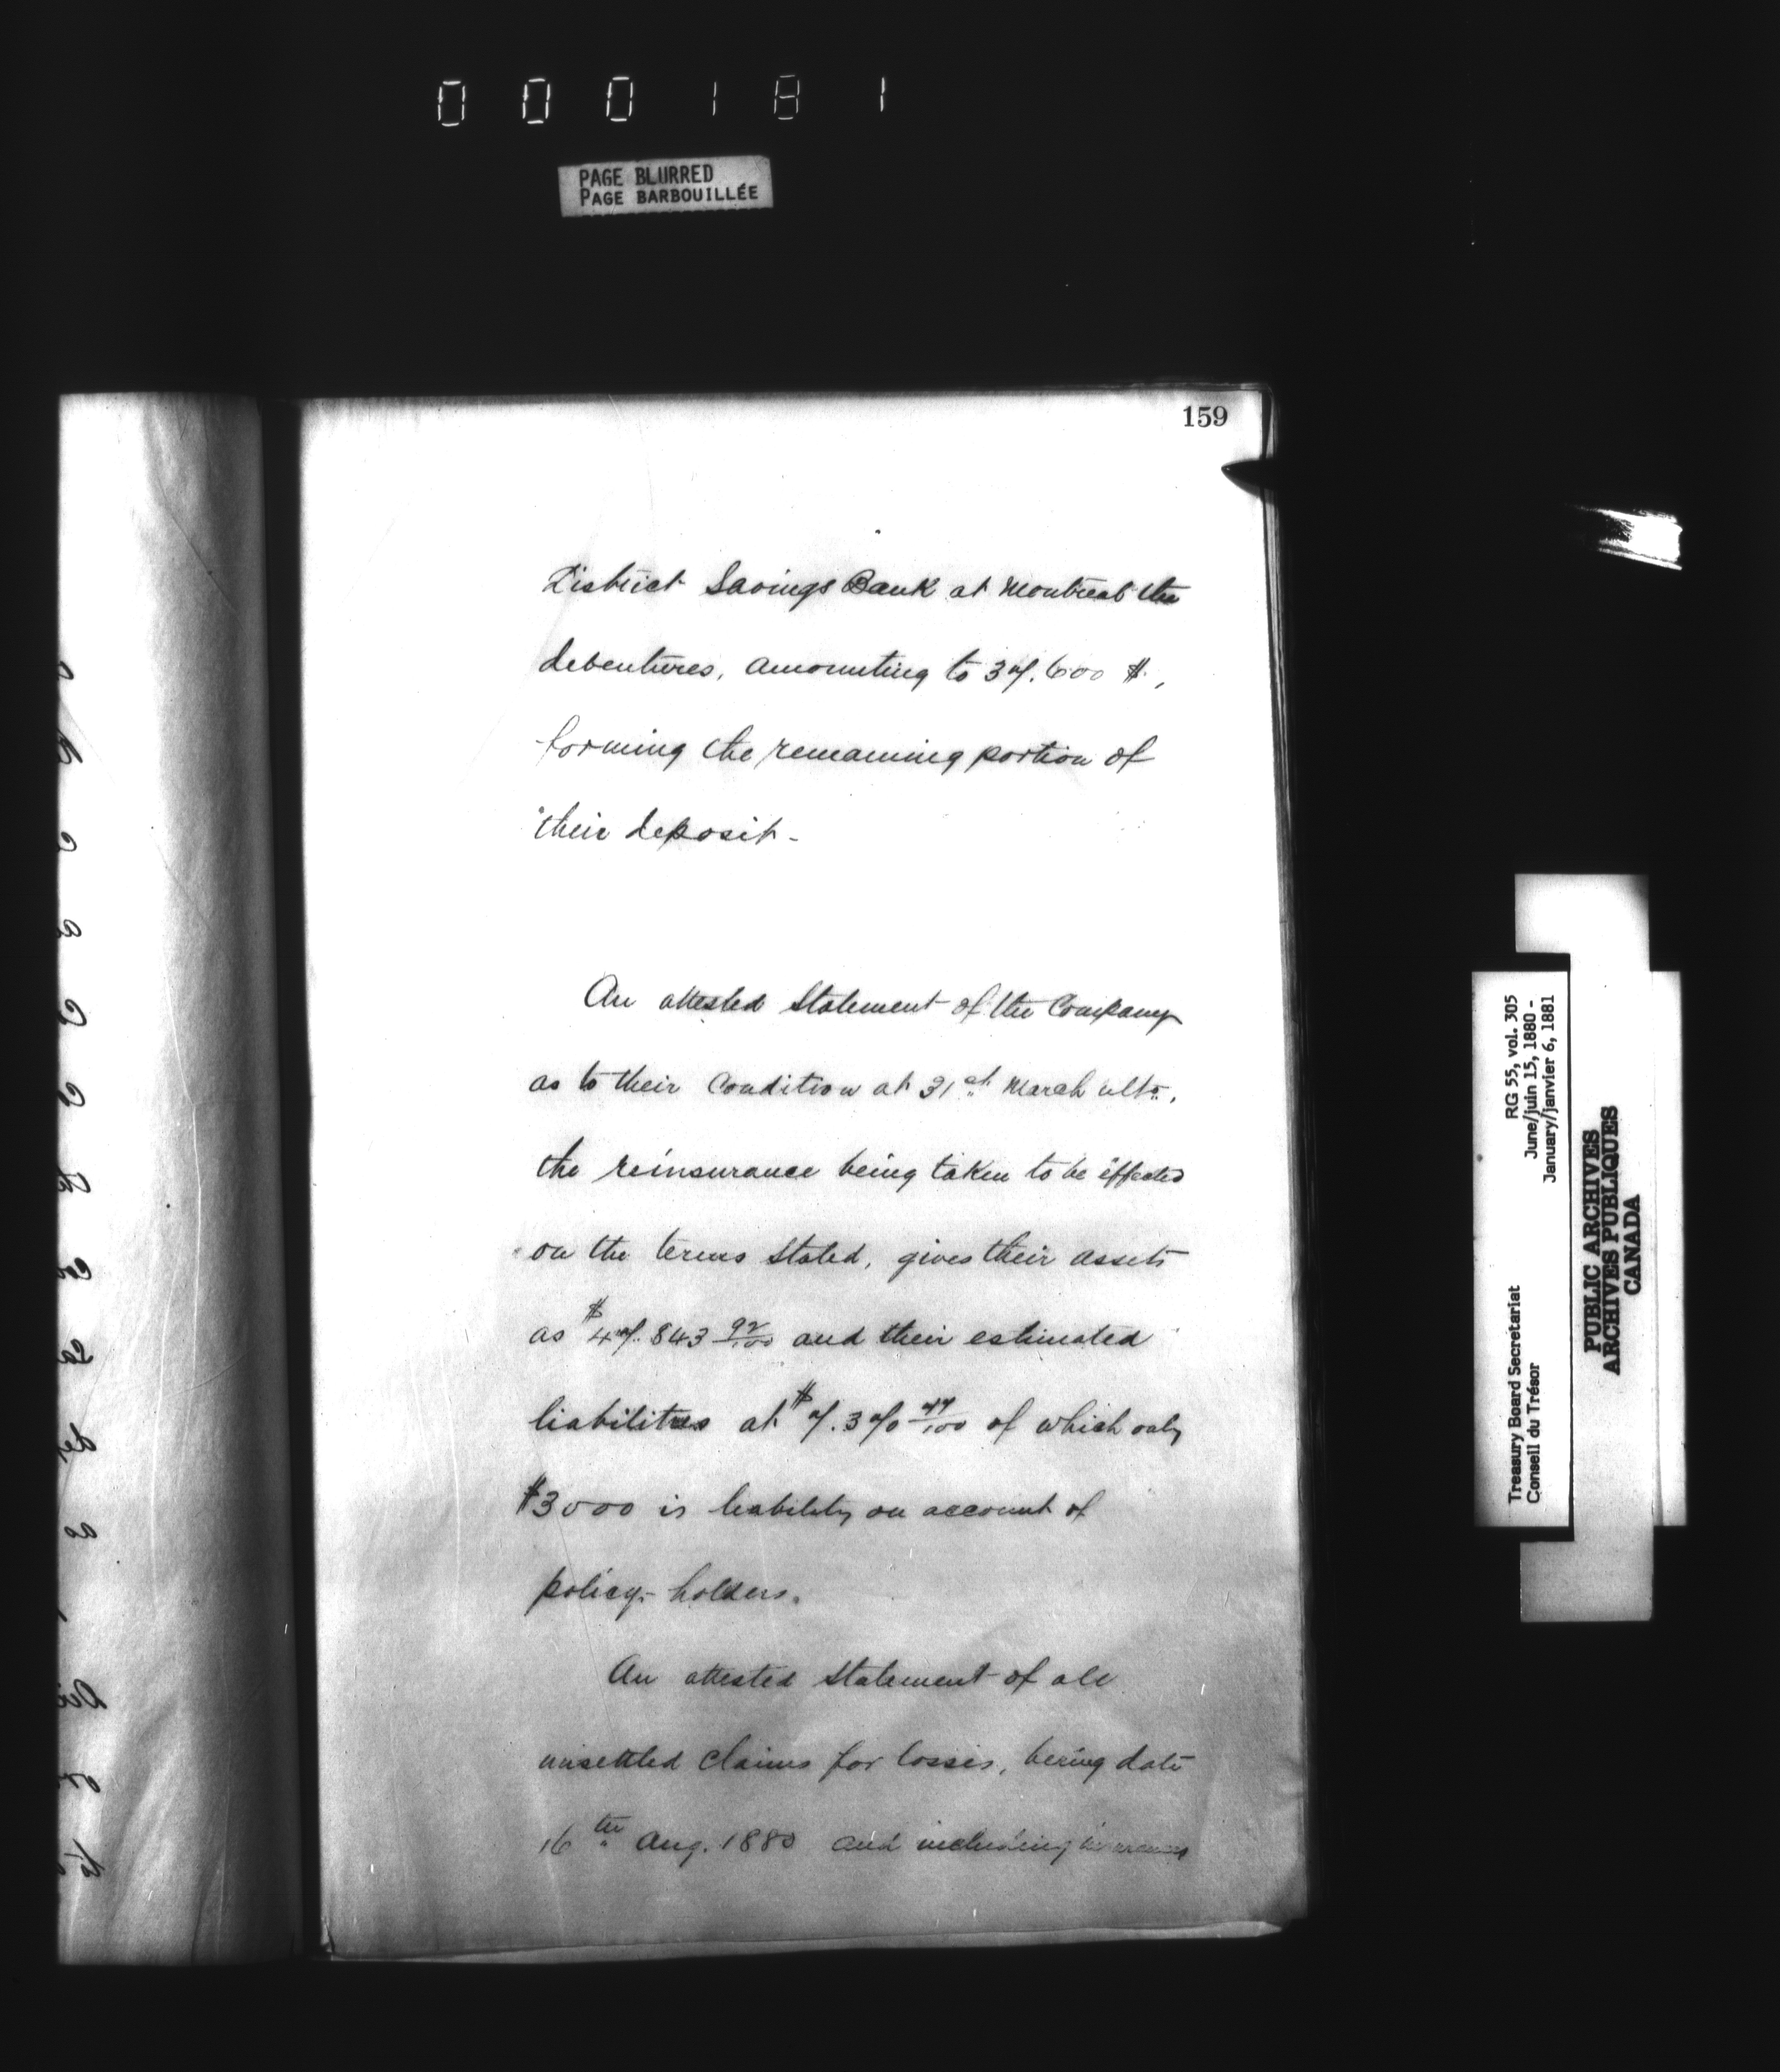 000181
PAGE BLURRED
PAGE BARBOUILLÉE
159
District Savings Bank at Montreal the
debentures, amounting to 600 $,
forming the remaining portion of
their deposit -
An attested Statement of the Company
as to their Condition at 31st March ulto.,
the reinsurance being taken to be effected
on the terms Stated, gives their assets
as $ 843 92/100 and their estimated
liabilities at $ of which only
$3000 is liability on account of
policy-holders.
An attested Statement of all
unsettled claims for losses, bering date
16th Aug. 1880 and including
Treasury Board Secretariat RG 55, vol. 305
Conseil du Trésor June/juin 15, 1880 -
January/janvier 6, 1881
PUBLIC ARCHIVES
ARCHIVES PUBLIQUES
CANADA